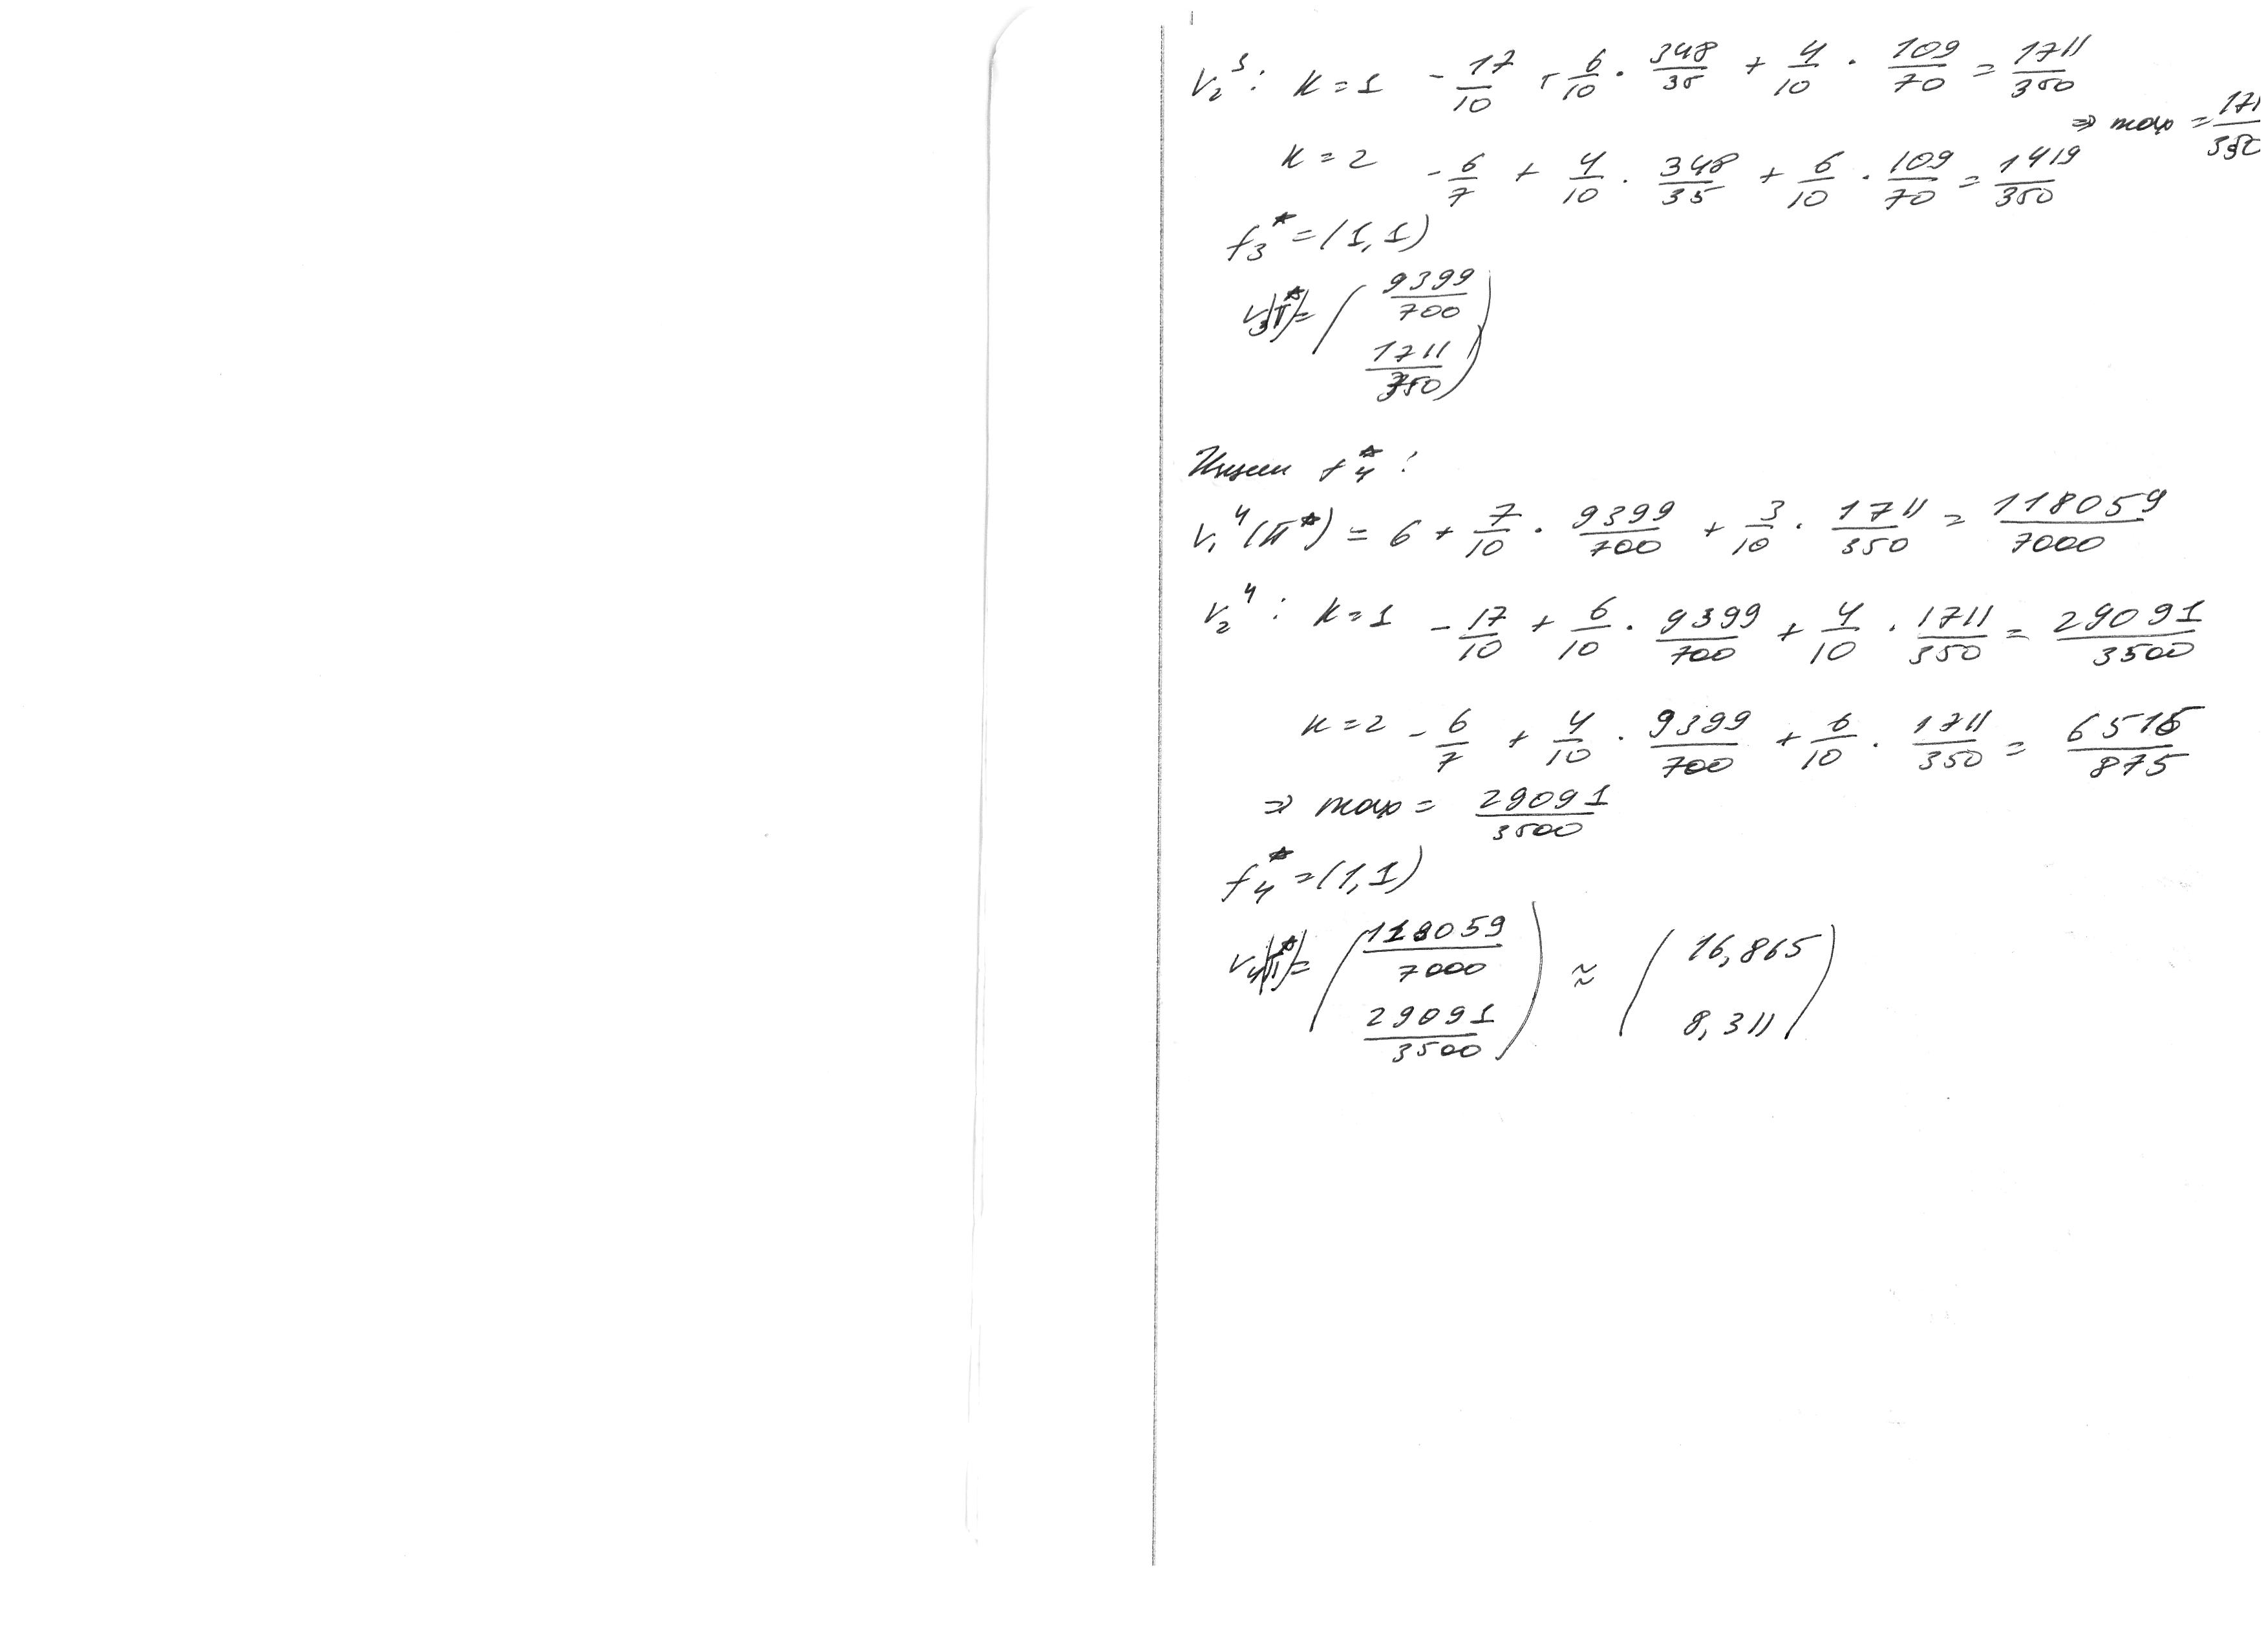 V₂³: k=1 -17/10 + 6/10 · 348/35 + 4/10 · 109/70 = 1711/350
⇒ max = 171/350
k=2 -6/7 + 4/10 · 348/35 + 6/10 · 109/70 = 1419/350
f₃* = (1,1)
V₃(π*) = (9399/700
1711/350)
Ищем f₄*:
V₁⁴(π*) = 6 + 7/10 · 9399/700 + 3/10 · 1711/350 = 118059/7000
V₂⁴: k=1 -17/10 + 6/10 · 9399/700 + 4/10 · 1711/350 = 29091/3500
k=2 -6/7 + 4/10 · 9399/700 + 6/10 · 1711/350 = 6516/875
⇒ max = 29091/3500
f₄* = (1,1)
V₄(π*) = (118059/7000 ≈ (16,865
29091/3500) 8,311)